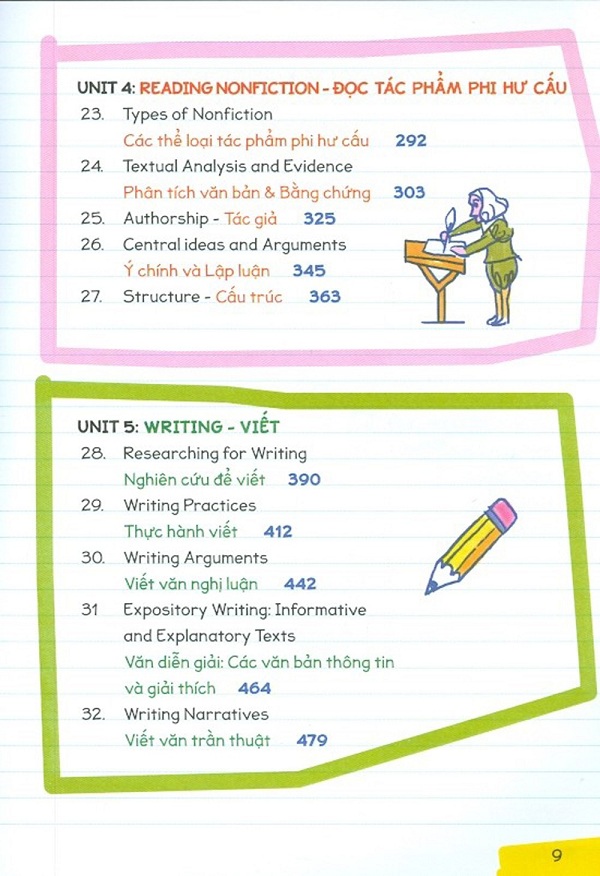 UNIT 4: READING NONFICTION - ĐỌC TÁC PHẨM PHI HƯ CẤU
23. Types of Nonfiction
Các thể loại tác phẩm phi hư cấu 292
24. Textual Analysis and Evidence
Phân tích văn bản & Bằng chứng 303
25. Authorship - Tác giả 325
26. Central ideas and Arguments
Ý chính và Lập luận 345
27. Structure - Cấu trúc 363
UNIT 5: WRITING - VIẾT
28. Researching for Writing
Nghiên cứu để viết 390
29. Writing Practices
Thực hành viết 412
30. Writing Arguments
Viết văn nghị luận 442
31 Expository Writing: Informative
and Explanatory Texts
Văn diễn giải: Các văn bản thông tin
và giải thích 464
32. Writing Narratives
Viết văn trần thuật 479
9